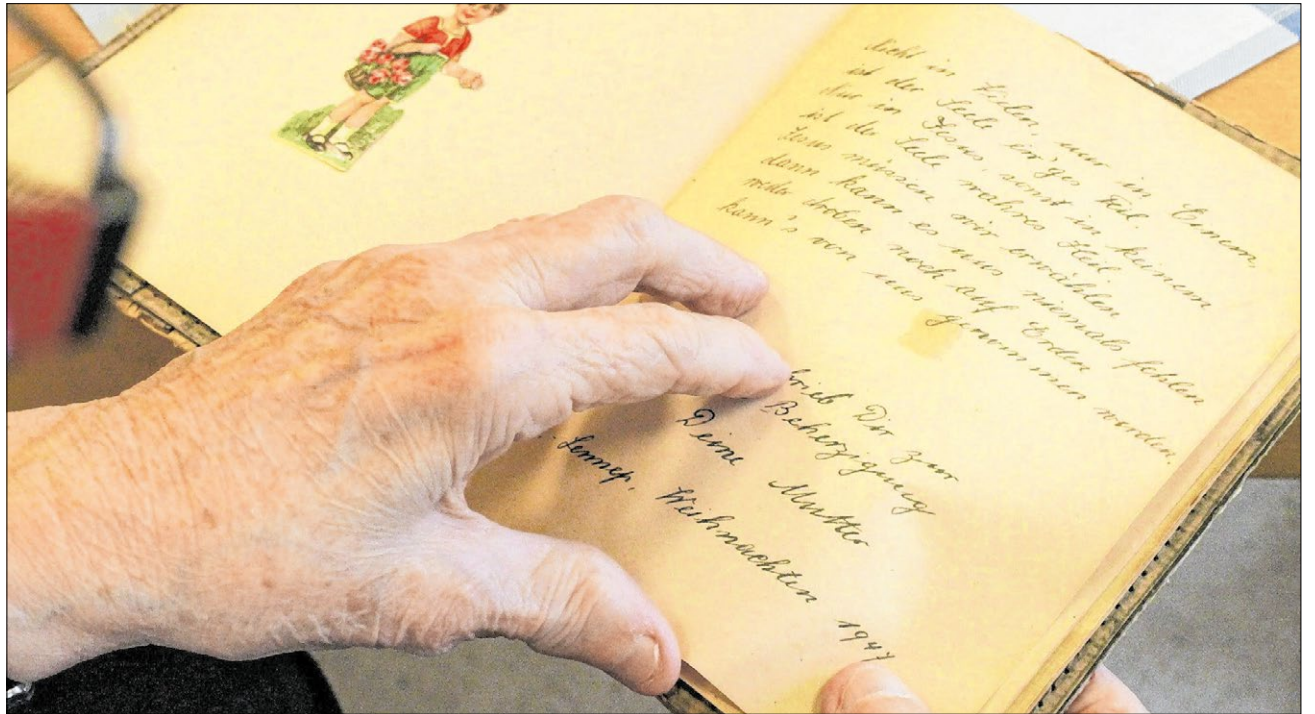 Nicht in Vielen, nur in Einem,
ist der Seele ew'ges Teil.
Nur in Jesus, sonst in keinem
ist der Seele wahres Heil.
Jesus müssen wir erwählen
dann kann es uns niemals fehlen
weder droben noch auf Erden
kann's von uns genommen werden.
schrieb Dir zur
Beherzigung
Deine Mutter
Lennep, Weihnachten 1947